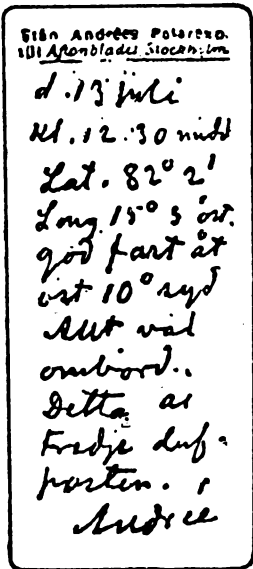 Från Andrées Polarexp.
till Aftonbladet, Stockholm
d. 13 juli
kl. 12.30 midd
Lat. 82° 2'
Long 15° 5' öst.
god fart åt
ost 10° syd
Allt väl
ombord.
Detta är
tredje duf-
posten.
Andrée